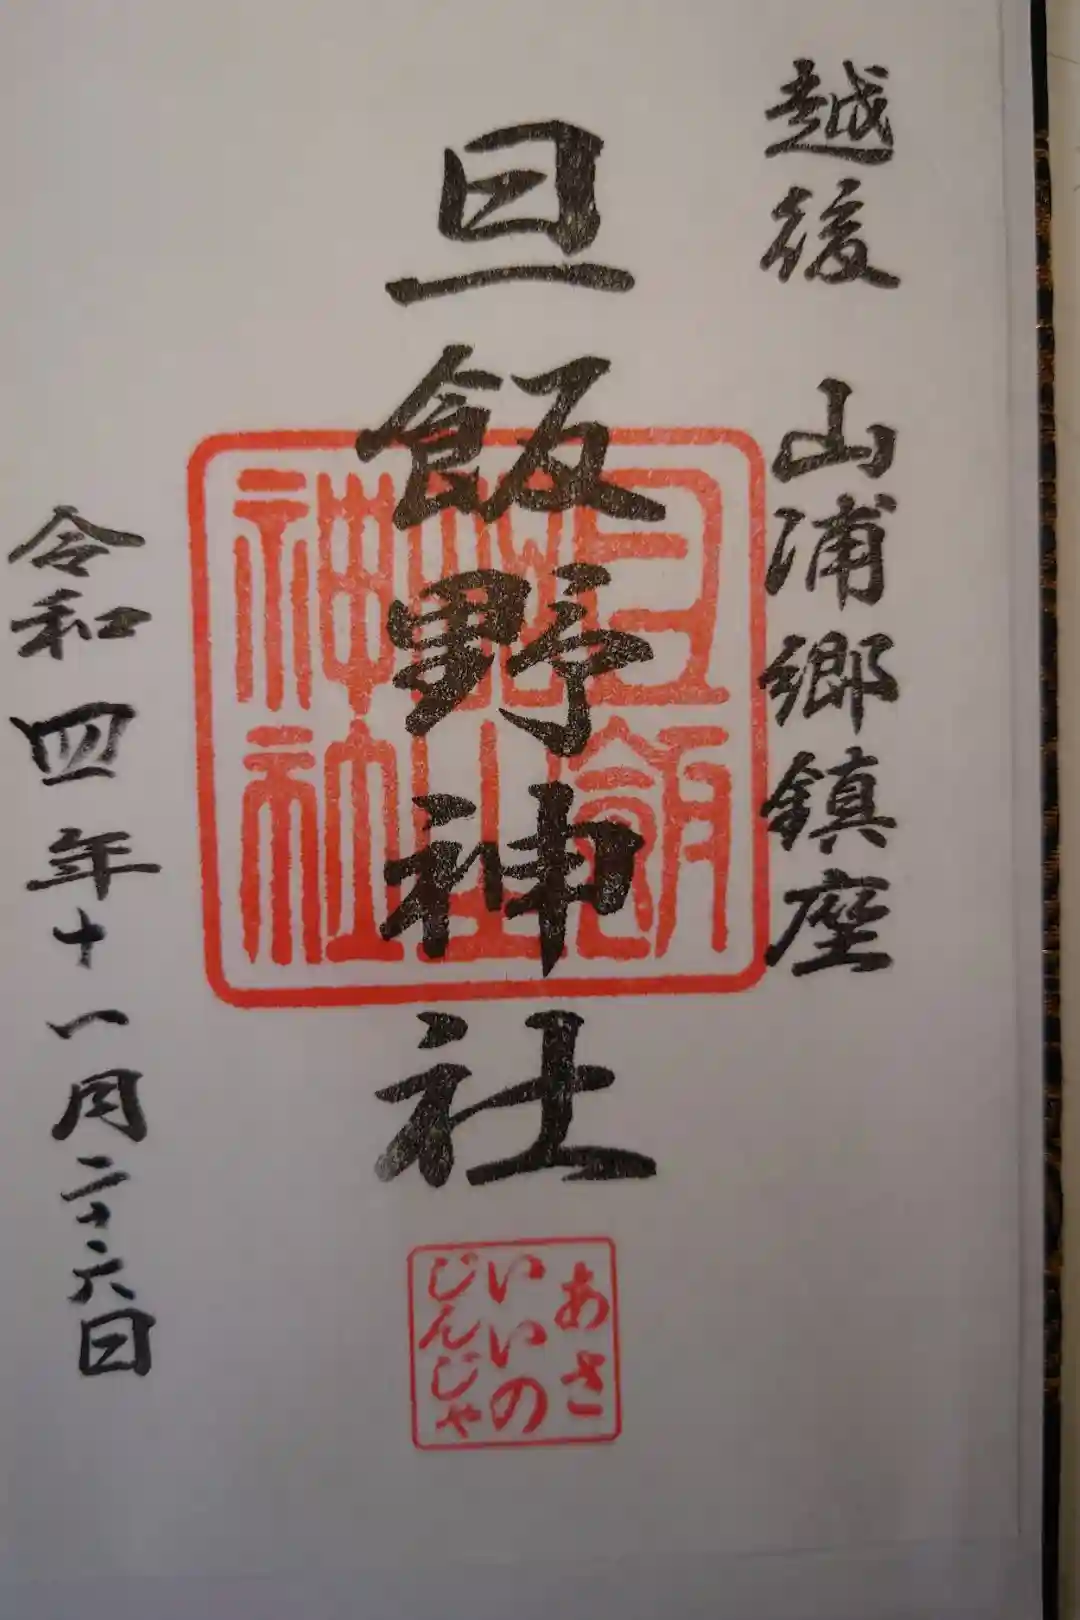 越後 山浦郷鎮座
旦飯野神社
令和四年十一月二十六日
あさ
いいの
じんじゃ